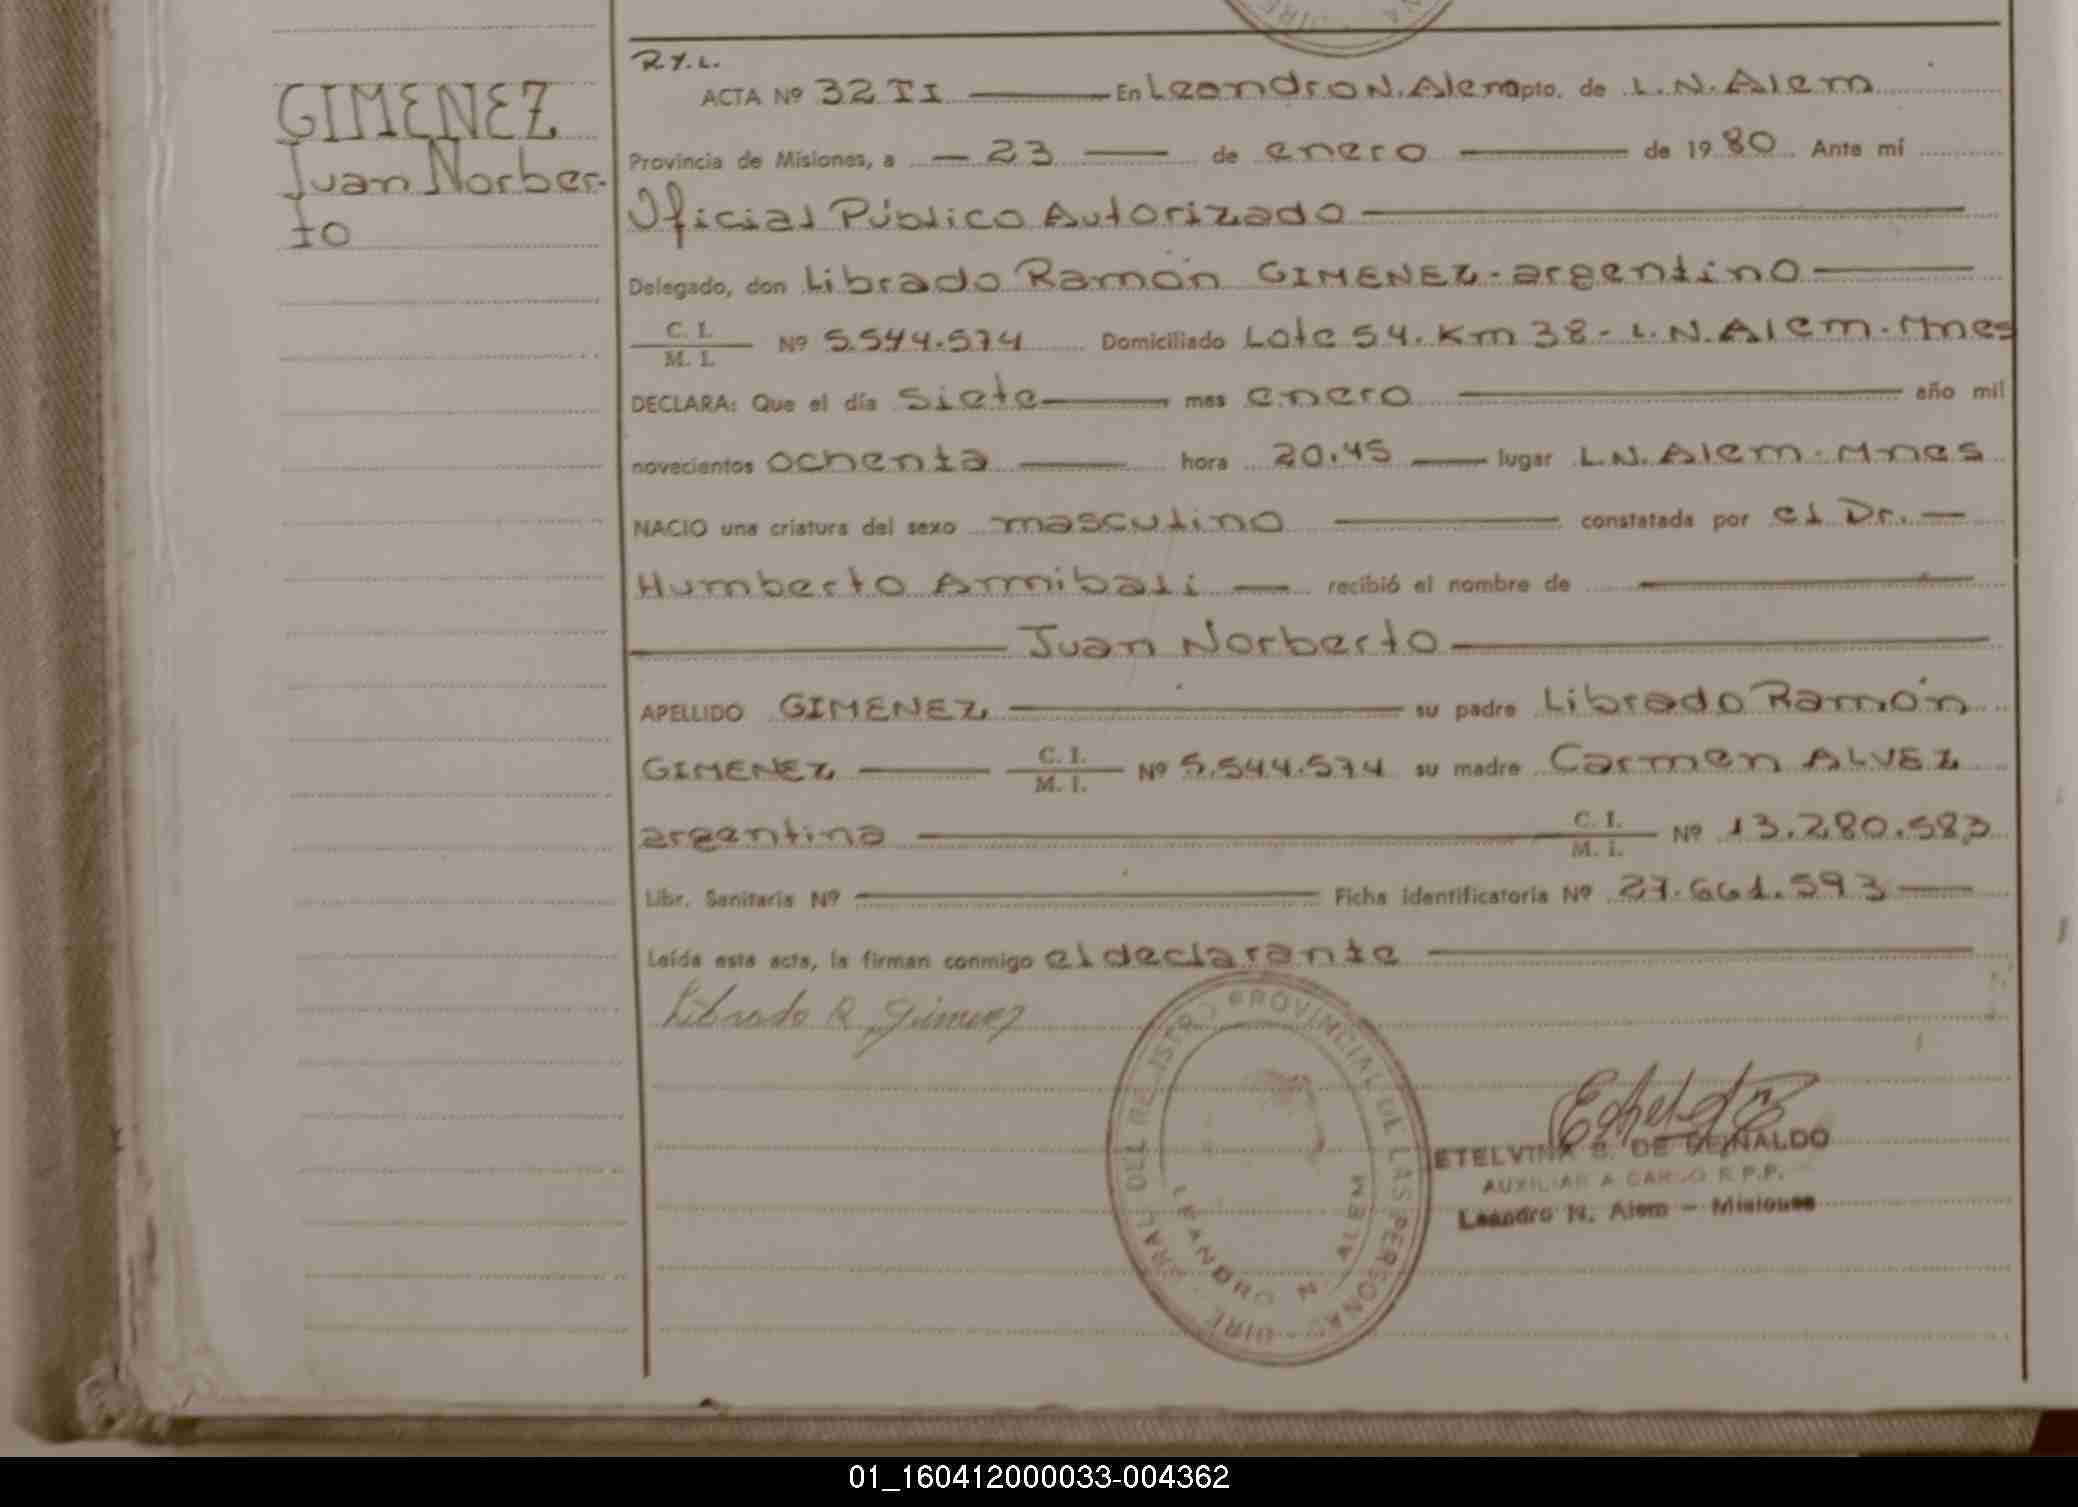 GIMENEZ
Juan Norber-
to
R.Y.L.
ACTA Nº 32 TI En Leandro N. Alem Dpto. de L.N. Alem
Provincia de Misiones, a - 23 de enero de 1980. Ante mí
Oficial Público Autorizado
Delegado, don Librado Ramón GIMENEZ - argentino
C. I. / M. I. Nº 5.544.574 Domiciliado Lote 54. Km 38 - L.N. Alem. Mnes
DECLARA: Que el día siete mes enero año mil
novecientos ochenta hora 20.45 lugar L.N. Alem - Mnes
NACIO una criatura del sexo masculino constatada por el Dr.
Humberto Annibali recibió el nombre de
Juan Norberto
APELLIDO GIMENEZ su padre Librado Ramón
GIMENEZ C. I. / M. I. Nº 5.544.574 su madre Carmen ALVEZ
argentina C. I. / M. I. Nº 13.280.583
Libr. Sanitaria Nº Ficha identificatoria Nº 27.661.593
Leída esta acta, la firman conmigo el declarante
Librado R Gimenez
PROVINCIAL DE LAS PERSONAS - DIRE RAL DEL REGISTRO
LEANDRO N. ALEM
ETELVINA B. DE REINALDO
AUXILIAR A CARGO R.P.P.
Leandro N. Alem - Misiones
01_160412000033-004362